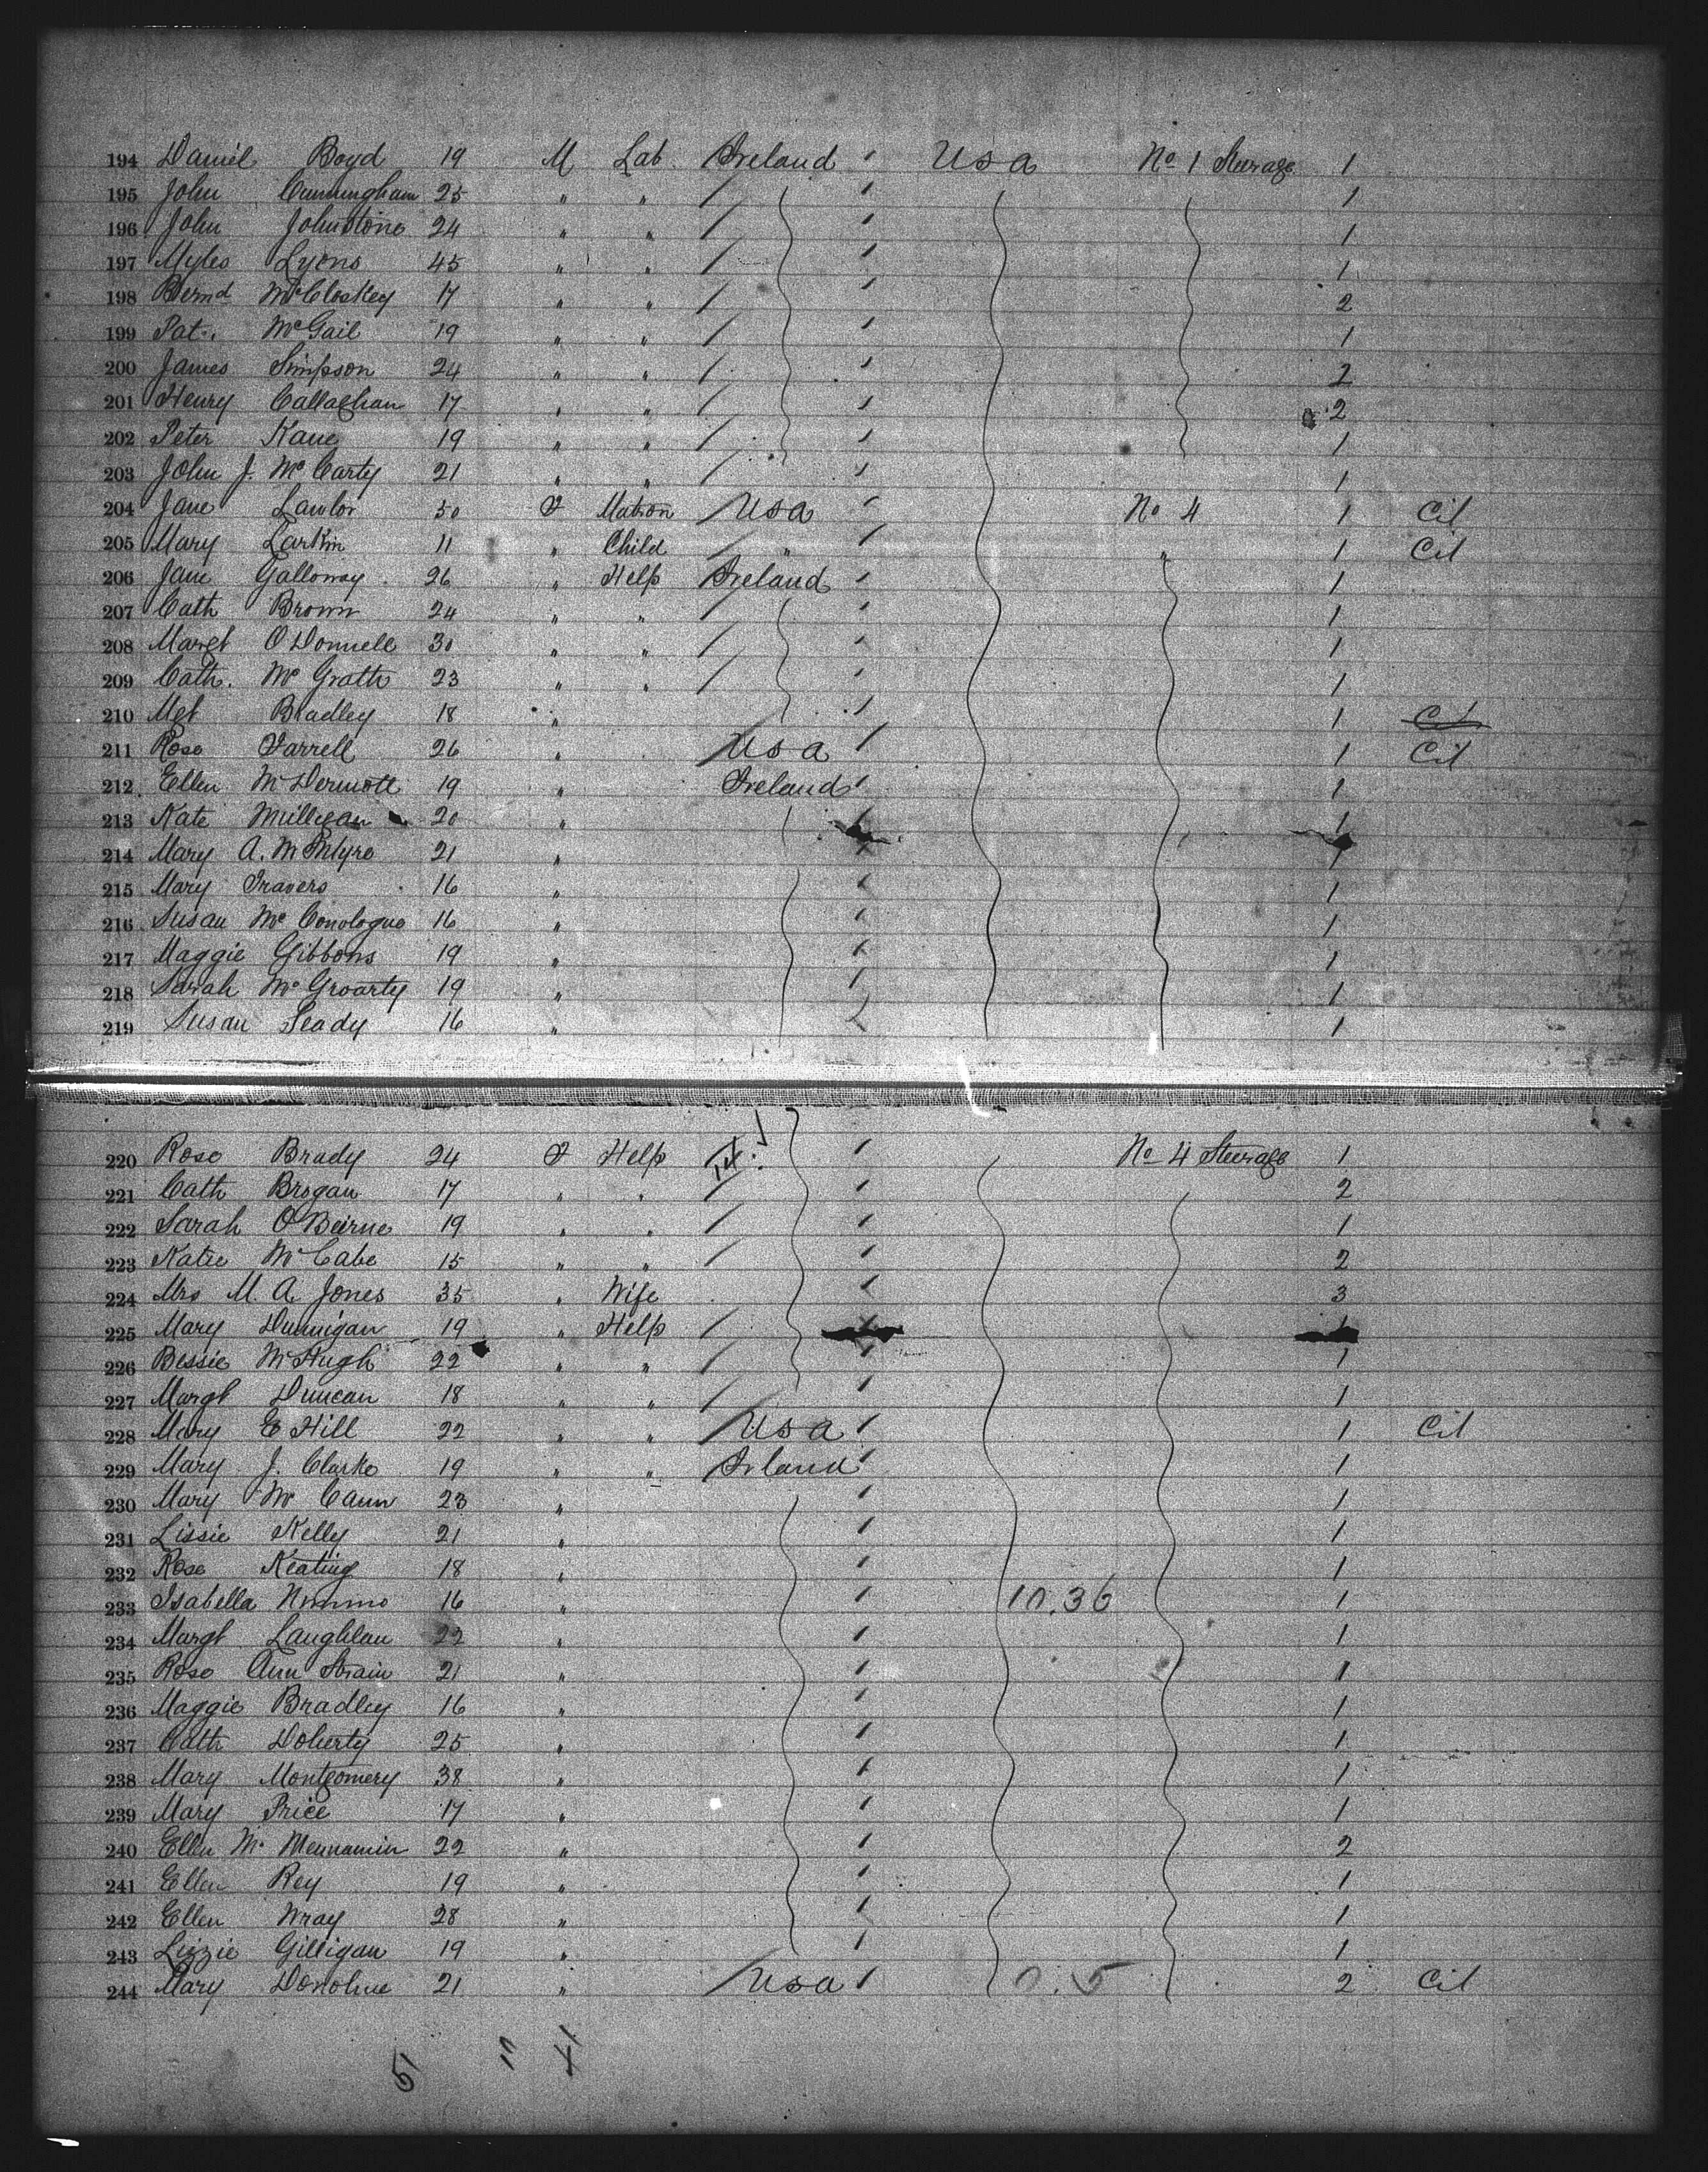 194 Daniel Boyd 19 M Lab. Ireland / USA No 1 Steerage 1
195 John Cunningham 25 " " / / 1
196 John Johnstone 24 " " / / 1
197 Myles Lyons 45 " " / / 1
198 Bernd McCloskey 17 " " / / 2
199 Pat. McGail 19 " " / / 1
200 James Simpson 24 " " / / 2
201 Henry Callaghan 17 " " / / 2
202 Peter Kane 19 " " / / 1
203 John J. McCarty 21 " " / / 1
204 Jane Lawlor 50 F Matron / USA / No 4 1 Cit
205 Mary Larkin 11 " Child / " / " 1 Cit
206 Jane Galloway 26 " Help Ireland / 1
207 Cath Brown 24 " " / / 1
208 Margt O'Donnell 30 " " / / 1
209 Cath. McGrath 23 " " / / 1
210 Mgt Bradley 18 " / 1 Cit
211 Rose Farrell 26 " / USA / 1 Cit
212 Ellen McDermott 19 " Ireland / 1
213 Kate Milligan 20 " / 1
214 Mary A. McIntyre 21 " / 1
215 Mary Travers 16 " / 1
216 Susan McConologue 16 " / 1
217 Maggie Gibbons 19 " / 1
218 Sarah McGroarty 19 " / 1
219 Susan Leady 16 " 1
220 Rose Brady 24 F Help / No 4 Steerage 1
221 Cath Brogan 17 " " / / 2
222 Sarah O'Beirne 19 " " / / 1
223 Katie McCabe 15 " " / / 2
224 Mrs M. A. Jones 35 " Wife / 3
225 Mary Dunnigan 19 " Help / / 1
226 Bessie McHugh 22 " " / / 1
227 Margt Duncan 18 " " / / 1
228 Mary E Hill 22 " " / USA / 1 Cit
229 Mary J. Clarke 19 " " Irland / 1
230 Mary McCann 23 " / 1
231 Lissie Kelly 21 " / 1
232 Rose Keating 18 " / 1
233 Isabella Nimmo 16 " / 10.36 1
234 Margt Laughlan 22 " / 1
235 Rose Ann Strain 21 " / 1
236 Maggie Bradley 16 " / 1
237 Cath Doherty 25 " / 1
238 Mary Montgomery 38 " / 1
239 Mary Price 17 " / 1
240 Ellen McMennamin 22 " / 2
241 Ellen Rey 19 " / 1
242 Ellen Wray 28 " / 1
243 Lizzie Gilligan 19 " / 1
244 Mary Donohue 21 " / USA / 2 Cit
51 11 41